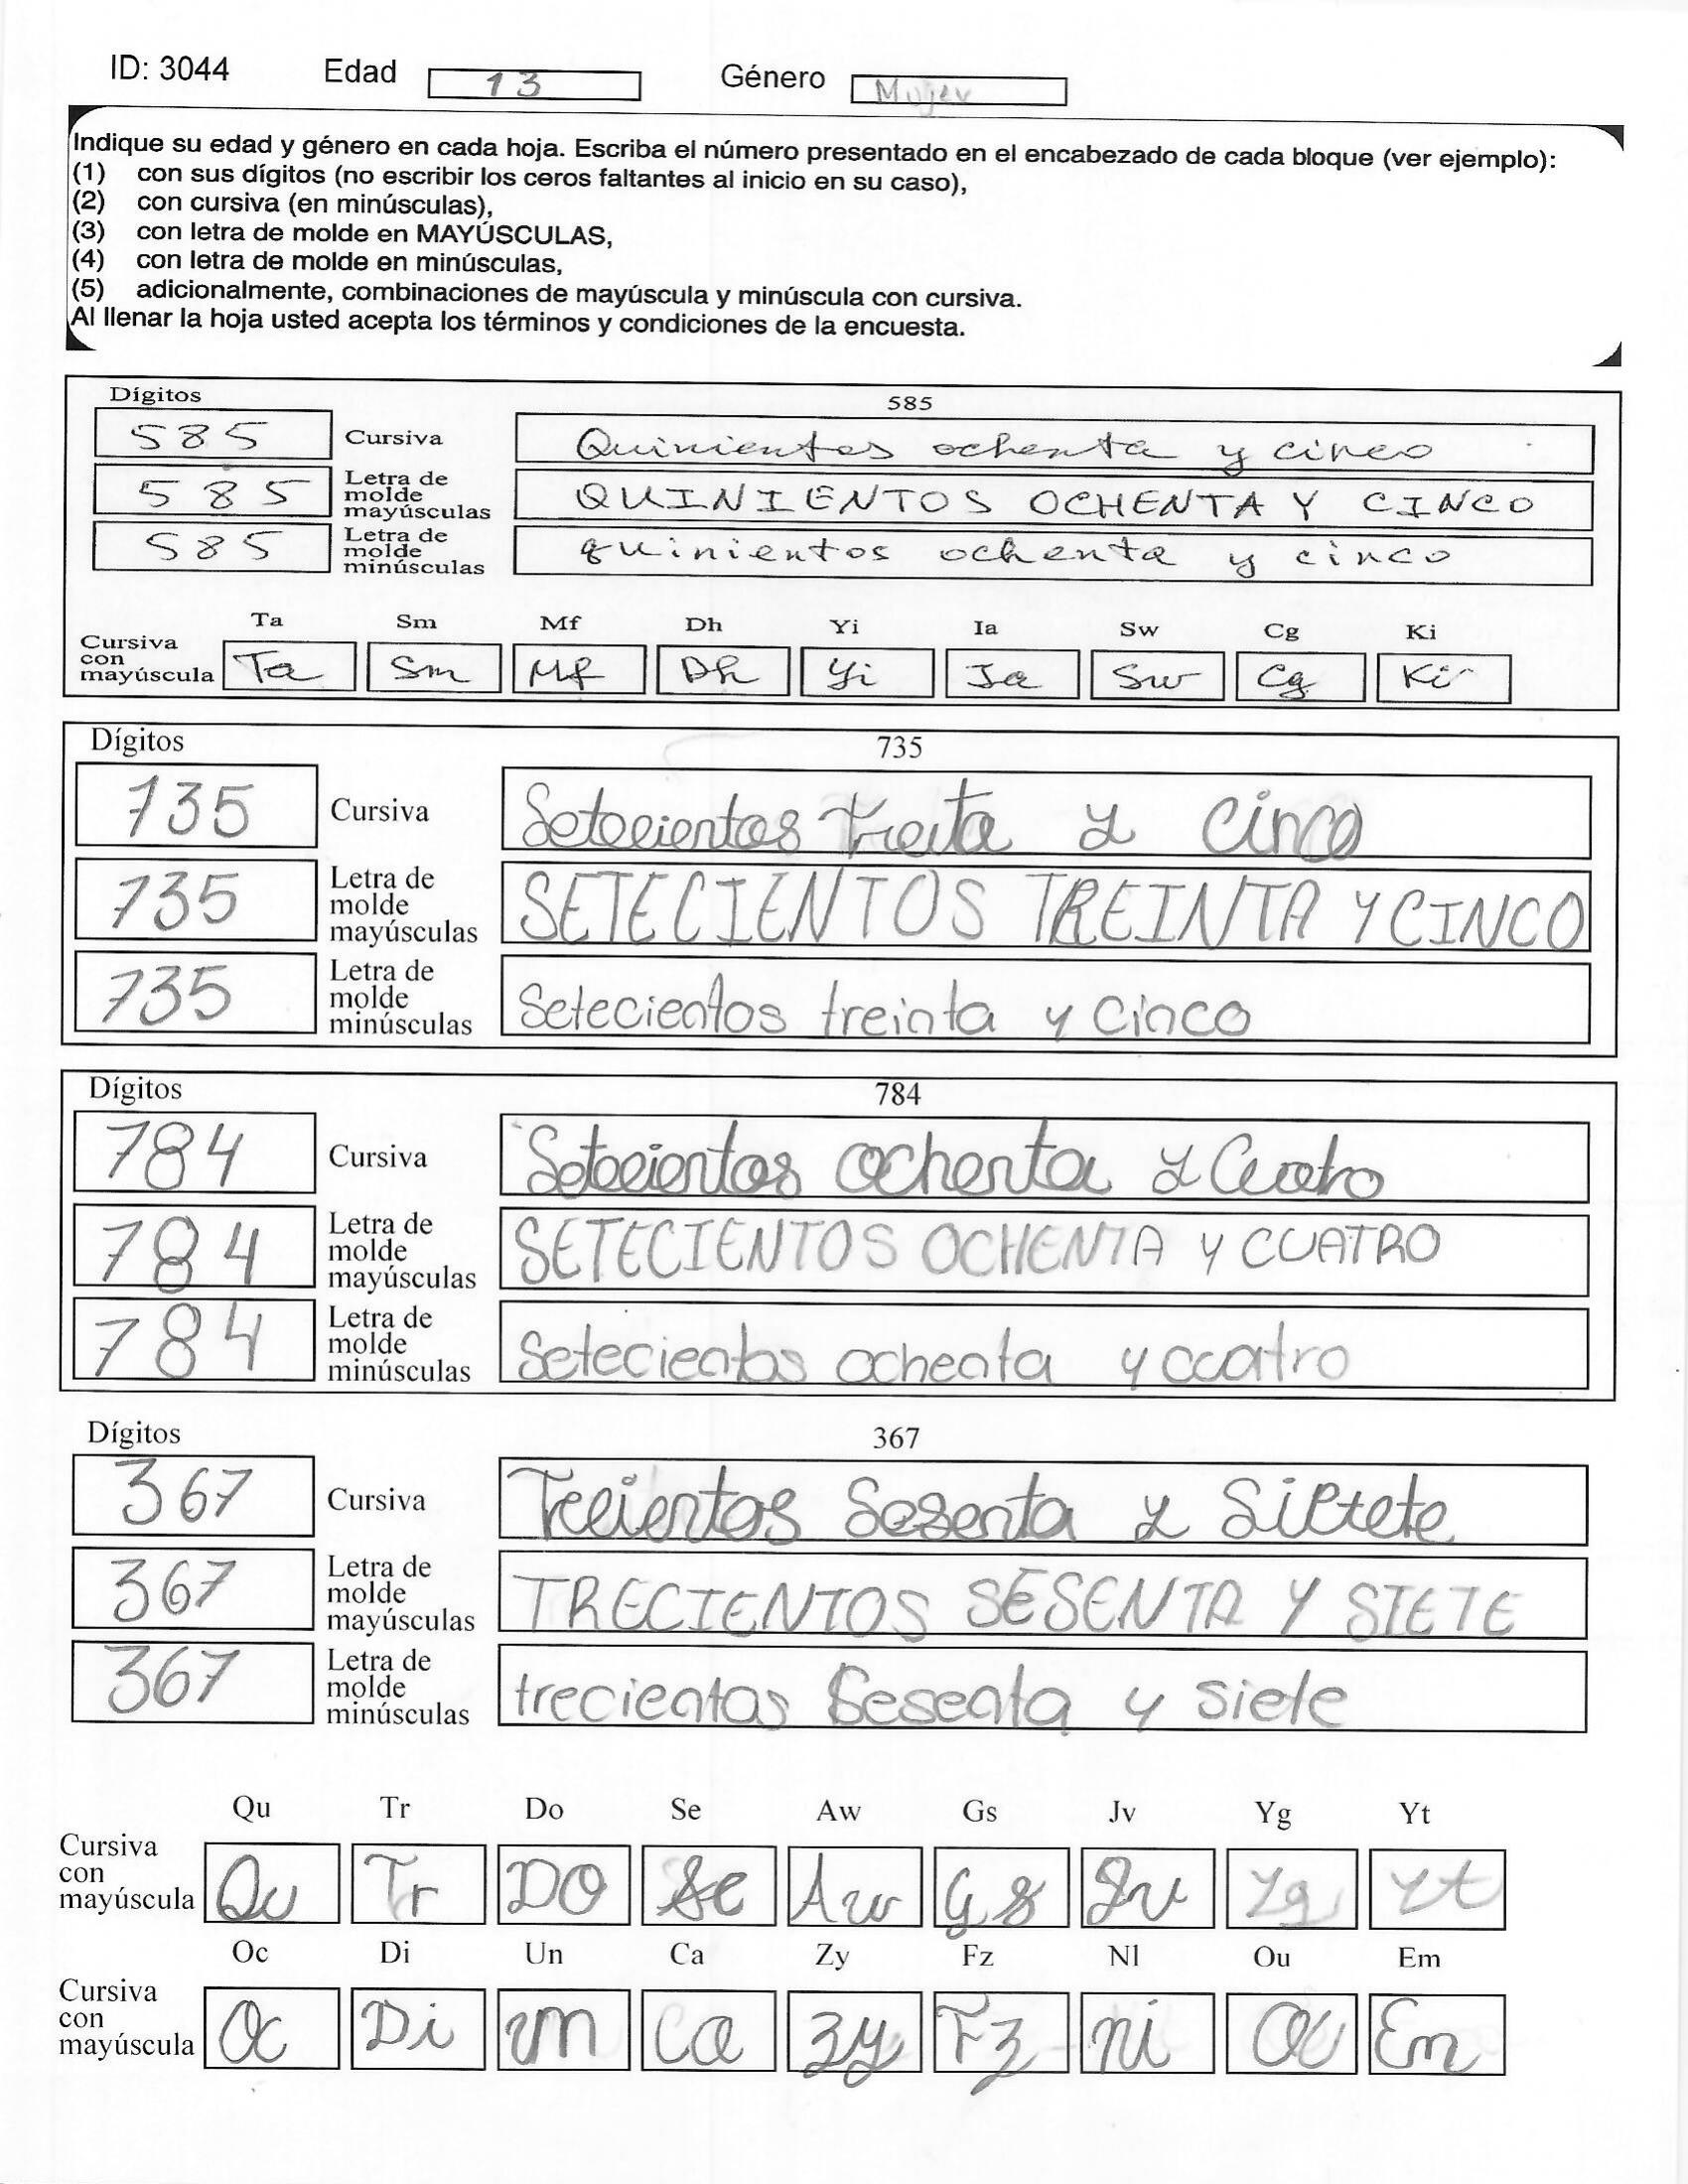 ID: 3044 Edad 13 Género Mujer
Indique su edad y género en cada hoja. Escriba el número presentado en el encabezado de cada bloque (ver ejemplo):
(1) con sus dígitos (no escribir los ceros faltantes al inicio en su caso),
(2) con cursiva (en minúsculas),
(3) con letra de molde en MAYÚSCULAS,
(4) con letra de molde en minúsculas,
(5) adicionalmente, combinaciones de mayúscula y minúscula con cursiva.
Al llenar la hoja usted acepta los términos y condiciones de la encuesta.
Dígitos 585
585 Cursiva Quinientos ochenta y cinco
585 Letra de molde mayúsculas QUINIENTOS OCHENTA Y CINCO
585 Letra de molde minúsculas quinientos ochenta y cinco
Ta Sm Mf Dh Yi Ia Sw Cg Ki
Cursiva con mayúscula Ta Sm Mf Dh Yi Ia Sw Cg Ki
Dígitos 735
735 Cursiva Setecientos treita y cinco
735 Letra de molde mayúsculas SETECIENTOS TREINTA Y CINCO
735 Letra de molde minúsculas Setecientos treinta y cinco
Dígitos 784
784 Cursiva Setecientos ochenta y Cuatro
784 Letra de molde mayúsculas SETECIENTOS OCHENTA Y CUATRO
784 Letra de molde minúsculas Setecientos ochenta y cuatro
Dígitos 367
367 Cursiva Trecientos Sesenta y Sietete
367 Letra de molde mayúsculas TRECIENTOS SESENTA Y SIETE
367 Letra de molde minúsculas trecientos Sesenta y siete
Qu Tr Do Se Aw Gs Jv Yg Yt
Cursiva con mayúscula Qu Tr DO Se Aw Gs Jv Yg Yt
Oc Di Un Ca Zy Fz Nl Ou Em
Cursiva con mayúscula Oc Di Un Ca Zy Fz ni Ou Em